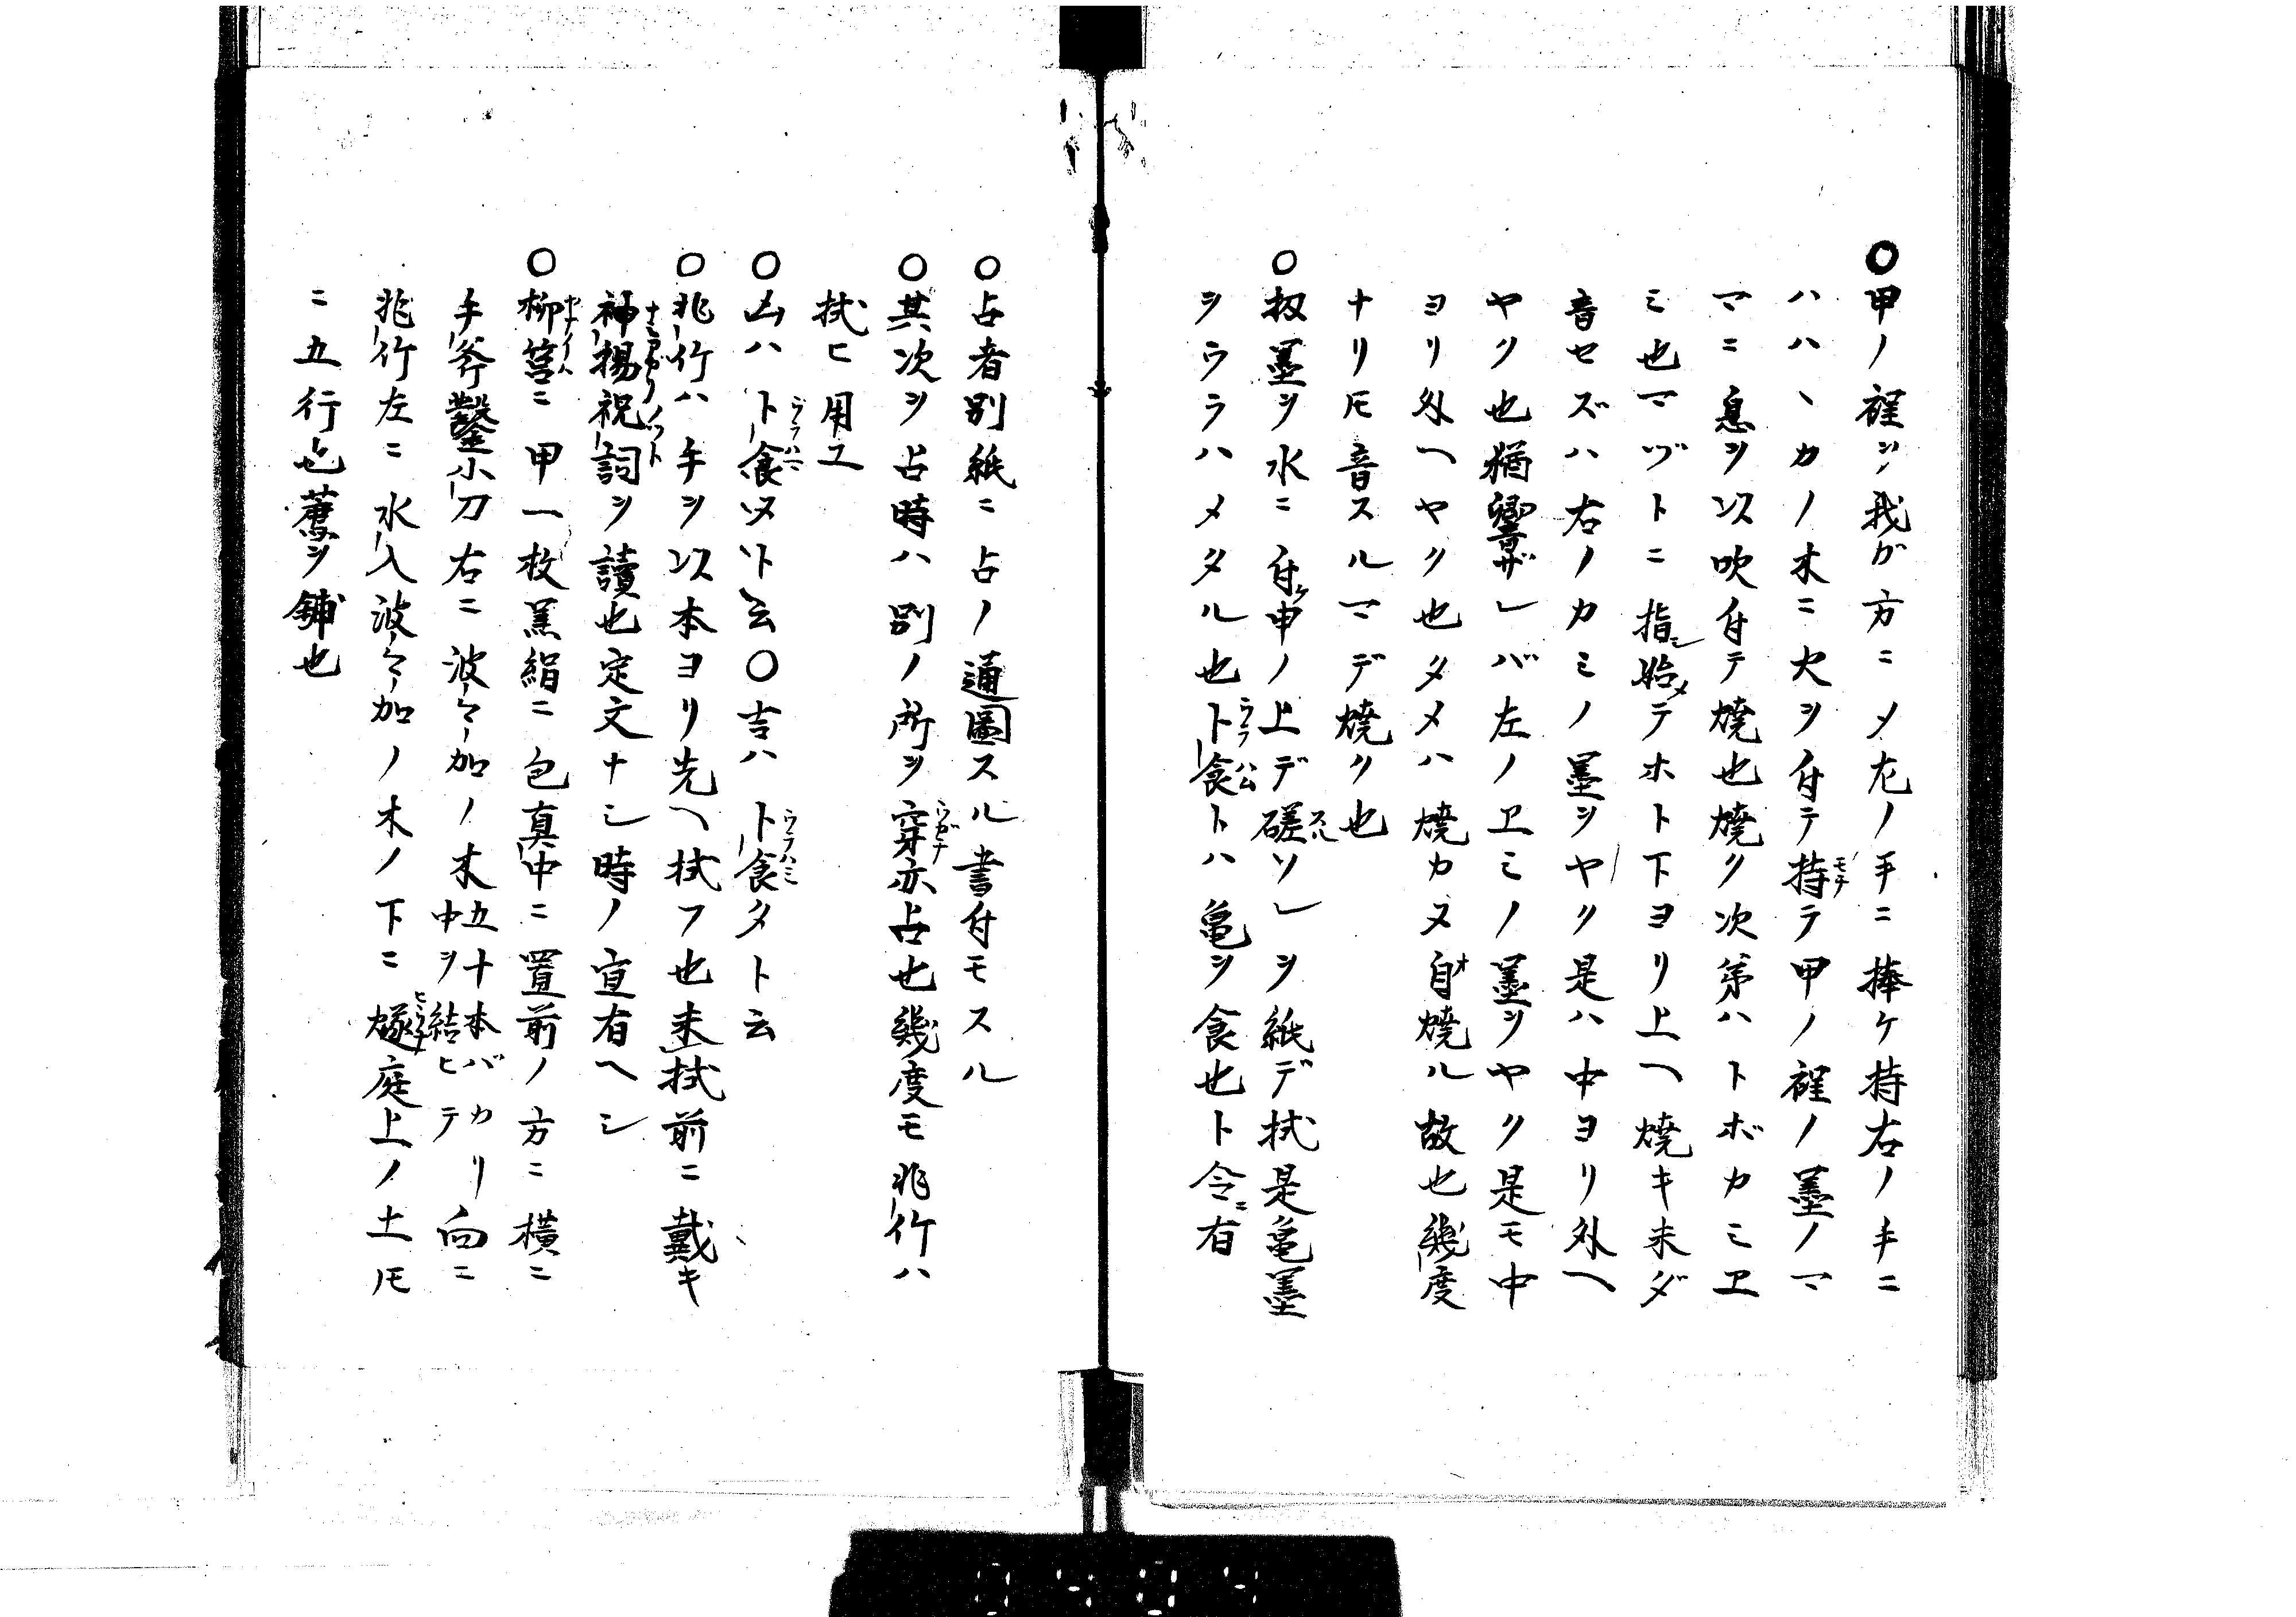 ○甲ノ裎ヲ我ガ方ニメ左ノ手ニ捧ケ持右ノ手ニ
ハハヽカノ木ニ火ヲ付テ持テ甲ノ裎ノ墨ノマ
マニ息ヲ以吹付テ焼也焼ク次第ハトボカミヱ
ミ也マヅトニ指シ始メテホト下ヨリ上ヘ焼キ未ダ
音セズハ右ノカミノ墨ヲヤク是ハ中ヨリ外ヘ
ヤク也猶響ザレバ左ノヱミノ墨ヲヤク是モ中
ヨリ外ヘヤク也タメハ焼カヌ自焼ル故也幾度
ナリ𪜈音スルマデ焼ク也
○扨墨ヲ水ニ付甲ノ上デ磋ソレヲ紙デ拭是亀墨
ヲウラハメタル也卜食トハ亀ヲ食也ト令ニ有
○占者別紙ニ占ノ通圖スル書付モスル
○其次ヲ占時ハ別ノ所ヲ穿亦占也幾度モ兆竹ハ
拭ヒ用ユ
○凶ハ卜食ヌト云○吉ハ卜食タト云
○兆竹ハ手ヲ以本ヨリ先ヘ拭フ也未拭前ニ戴キ
神揚祝詞ヲ讀也定文ナシ時ノ宣有ヘシ
○柳筥ニ甲一枚黒絹ニ包真中ニ置前ノ方ニ横ニ
手斧鑿小刀右ニ波々加ノ木五十本バカリ中ヲ結ヒテ向ニ
兆竹左ニ水入波々加ノ木ノ下ニ燧庭上ノ土𪜈
ニ五行也薦ヲ舗也